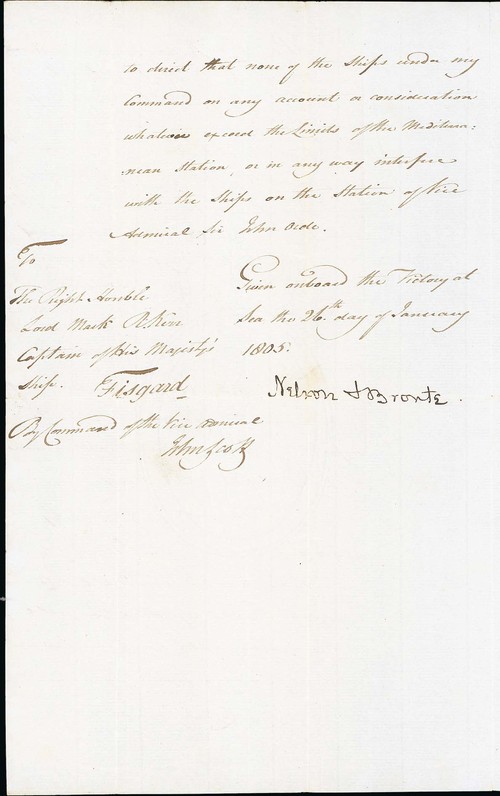 to direct that none of the Ships under my
Command on any account or consideration
whatever exceed the Limits of the Mediterra=
nean Station, or in any way interfere
with the Ships on the Station of Vice
Admiral Sir John Orde.
To
The Right Honble
Lord Mark R. Kerr
Captain of His Majesty's
Ship. Fisgard
Given onboard the Victory at
Sea the 26th day of January
1805.
Nelson & Bronte.
By Command of the Vice Admiral
John Scott